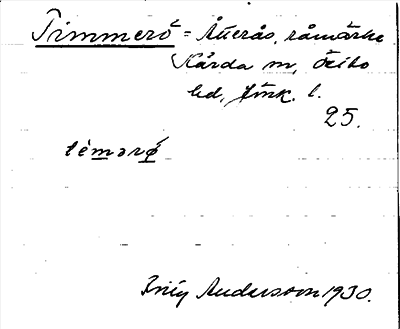 Timmerö = Åtterås, råmärke
Kårda sn, Östbo
hd, Jönk. l.
25.
tèmərǿ
Andersson 1930.